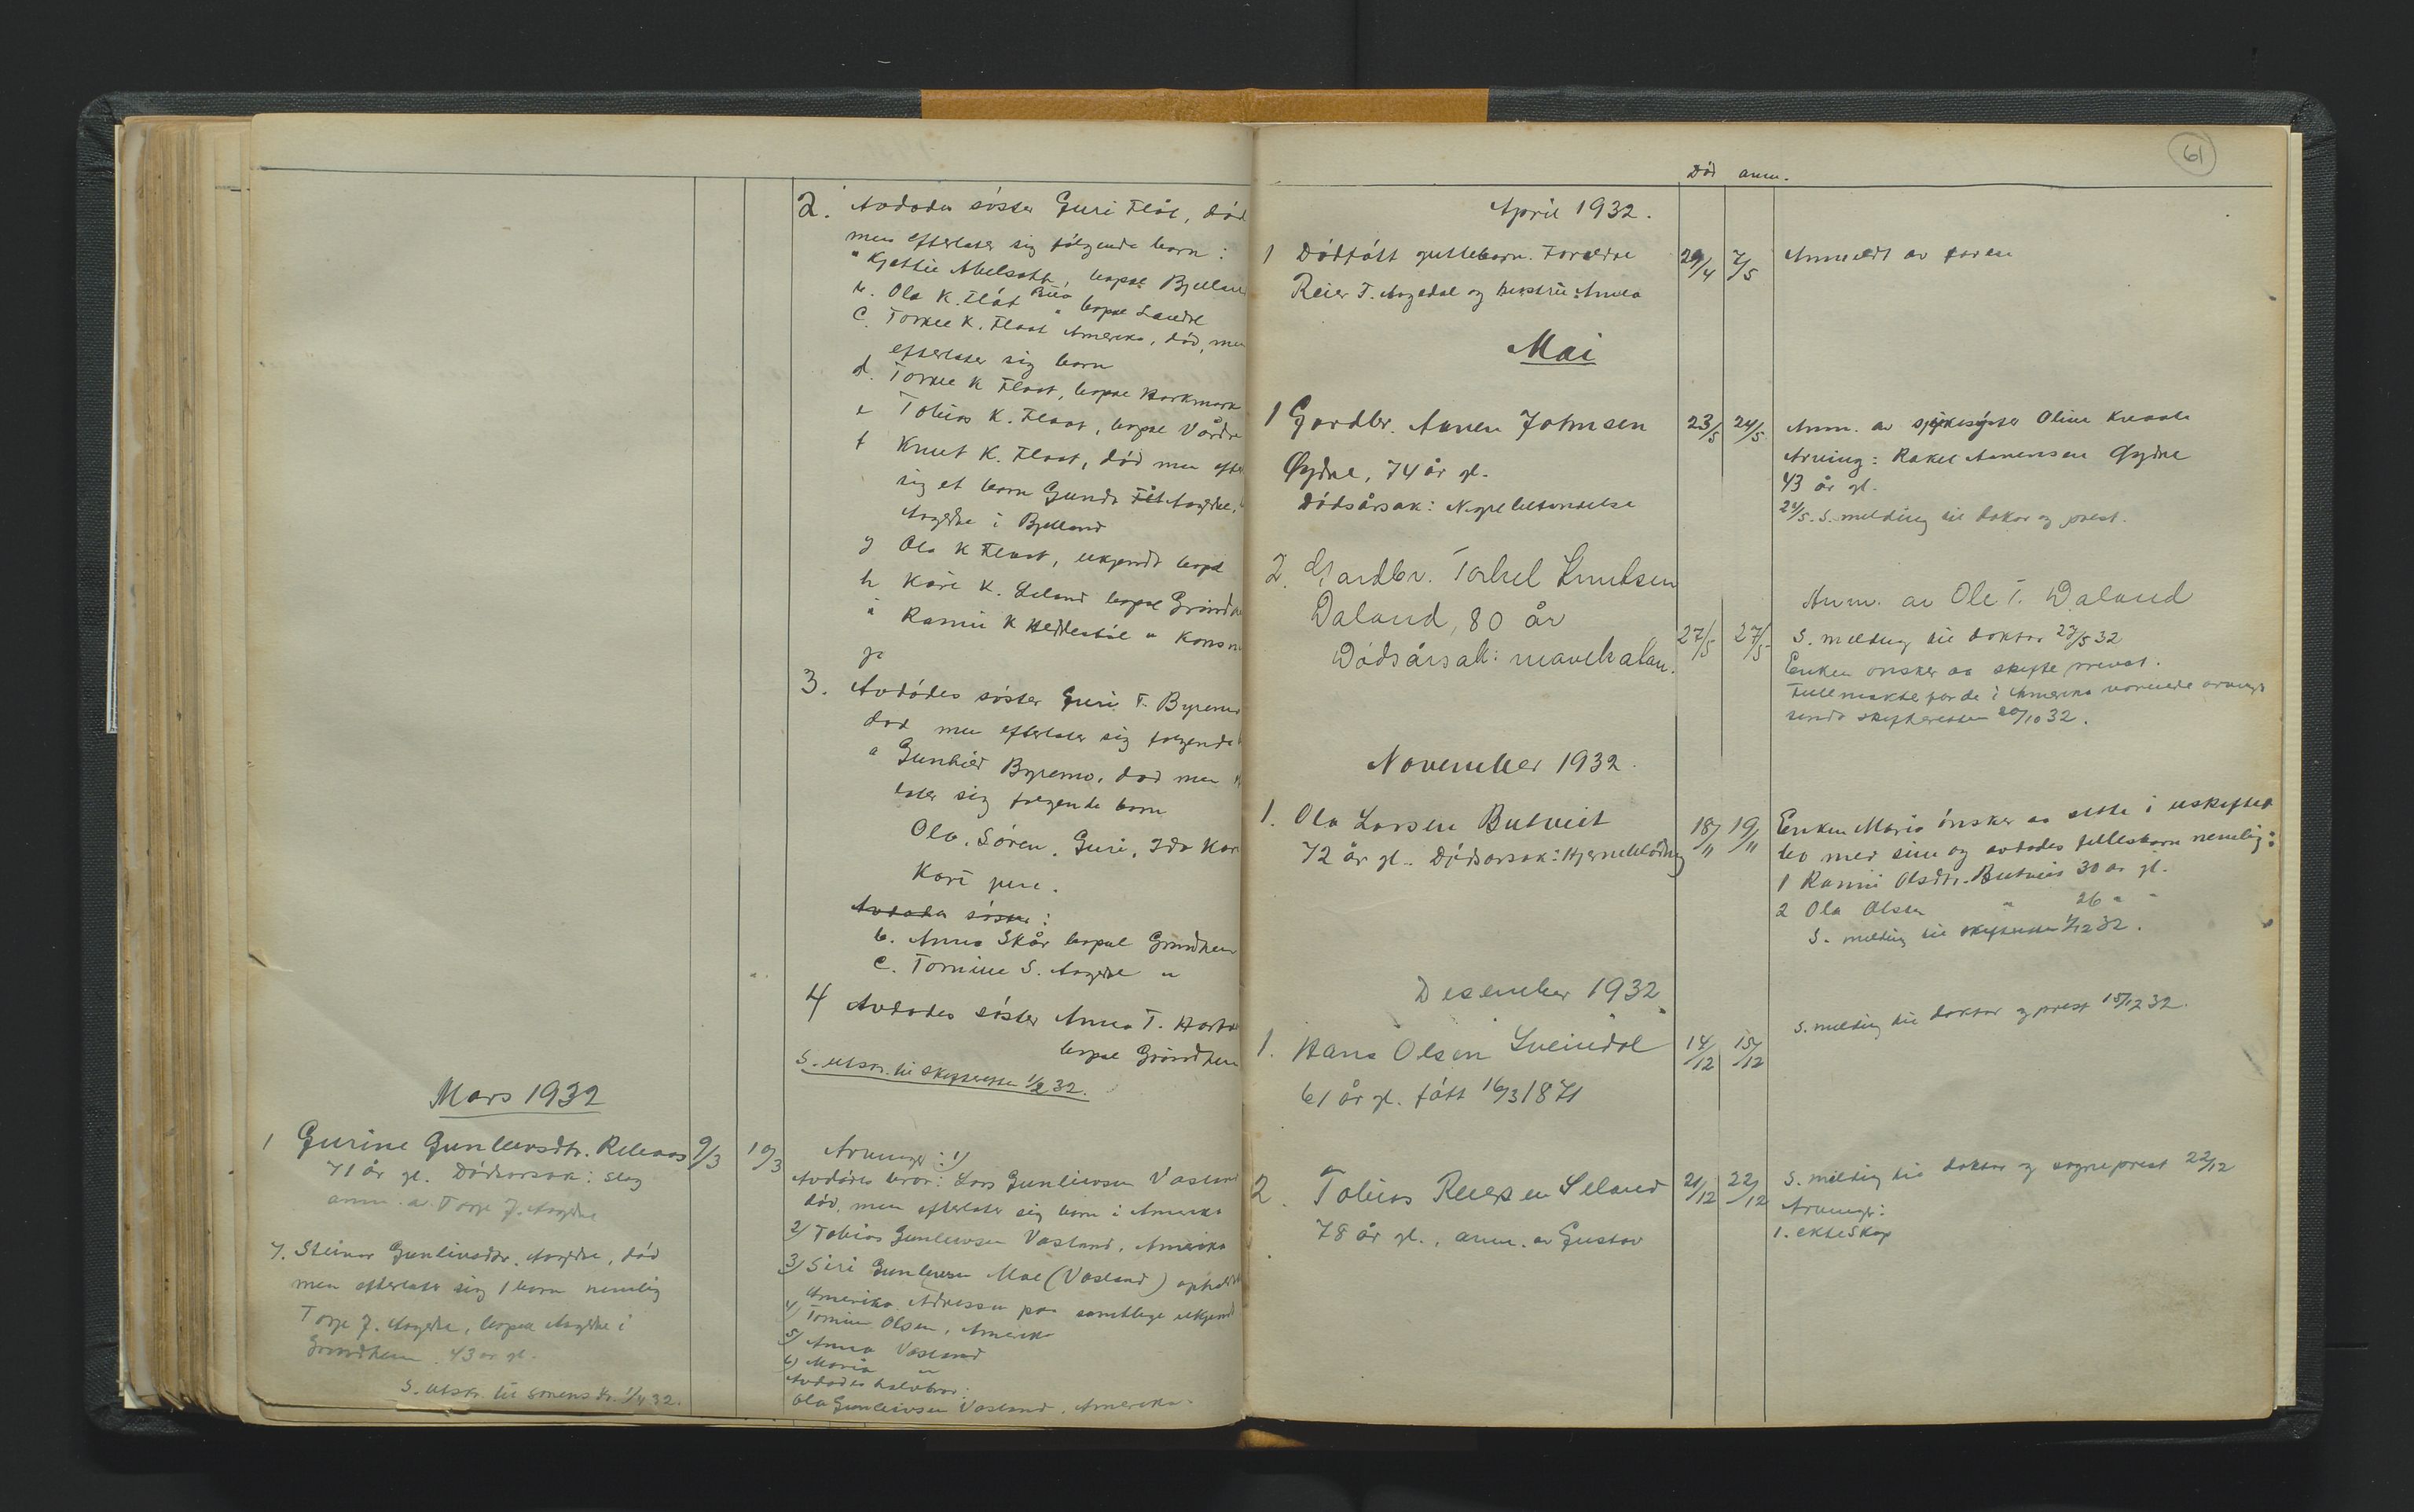 2. Avdødes søster Guri Flåt, død
men efterlater sig følgende barn:
Kjættie Abelsett, bopæl Bjelland
b. Ola K. Flåt bopæl Laudal
c. Torkel K. Flaat Amerika, død, men
efterlater sig barn
d. Torkel K Flaat, bopæl Harkmark
e Tobias K. Flaat, bopæl
f Knut K. Flaat, død men efter
sig et barn Gunda Aagedal,
Aagedal i Bjelland
g Ola K Flaat, ukjendt bopel
h Kari K. Leland bopæl Grindheim
i Rannei K Heddestøl "
3. Avdødes søster Guri T. Byremo
død men efterlater sig følgende
a Gunhild Byremo, død men
later sig følgende barn
Ola, Søren, Guri, Ida
Kari
Avdødes søster:
b. Anna Skår bopæl Grindheim
c. Tomine S. Aagedal "
4 Avdødes søster Anna T.
bopæl Grindheim
S. utskr. til skifteretten 1/2 32.
Mars 1932
1 Gurine Gunleivsdtr. 9/3 10/3
71 år gl. Dødsårsak: slag
anm. av Torje J. Aagedal
7. Steinar Gunleivsdtr. Aagedal, død
men efterlater sig 1 barn nemlig
Torje J. Aagedal, bopæl Aagedal i
Grindheim. 43 år gl.
S. utskr. til sorensk. 1/4 32.
Arvinger: 1)
Avdødes bror: Lars Gunleivsen Vasland
død, men efterlater sig barn i Amerika
2) Tobias Gunleivsen Vasland, Amerika
3) Siri Gunleivsen Moe (Vasland) ophold
Amerika. Adressen paa samtlige ukjend
4) Tomine Olsen, Amerika
5) Anna Vasland
6) Maria "
Avdødes halvbror:
Ola Gunleivsen Vasland, Amerika.
61
Død anm.
April 1932.
1 Dødfått guttebarn. Foreldre 29/4 7/5 Anmeldt av faren
Reier T. Aagedal og hustru Anna
Mai
1 Gardbr. Aanen Johnsen 23/5 24/5 Anm. av sykesyster Oline
Øydne, 74 år gl.
Dødsårsak: Nyrebetendelse
Arving: Rakel Aanensen Øydne
43 år gl.
24/5. S. melding til doktor og prest.
2. Gardbr. Torkel Knutsen
Daland, 80 år 27/5 27/5
Dødsårsak: mavekatar.
Anm. av Ole T. Daland
S. melding til doktor 27/5 32
Enken ønsker aa skifte privat.
Fullmakter for de i Amerika værende arvinger
sendt skifteretten 20/10 32.
November 1932.
1. Ola Larsen Butveit 18/11 19/11
72 år gl. Dødsårsak: Hjerneblødning
Enken Maria ønsker aa sitte i uskiftet
bo med sine og avdødes fellesbarn nemlig:
1 Rannei Olsdtr. Butveit 30 år gl.
2 Ola Olsen " 26 " "
S. melding til skifteretten 1/12 32.
Desember 1932
1. Hans Olsen Sveindal 14/12 15/12 S. melding til doktor og prest 15/12 32.
61 år gl. fått 16/3 1871
2. Tobias Reiersen Seland 21/12 22/12 S. melding til doktor og sogneprest 22/12
78 år gl., anm. av Gustav
Arvinger:
1. ekteskap